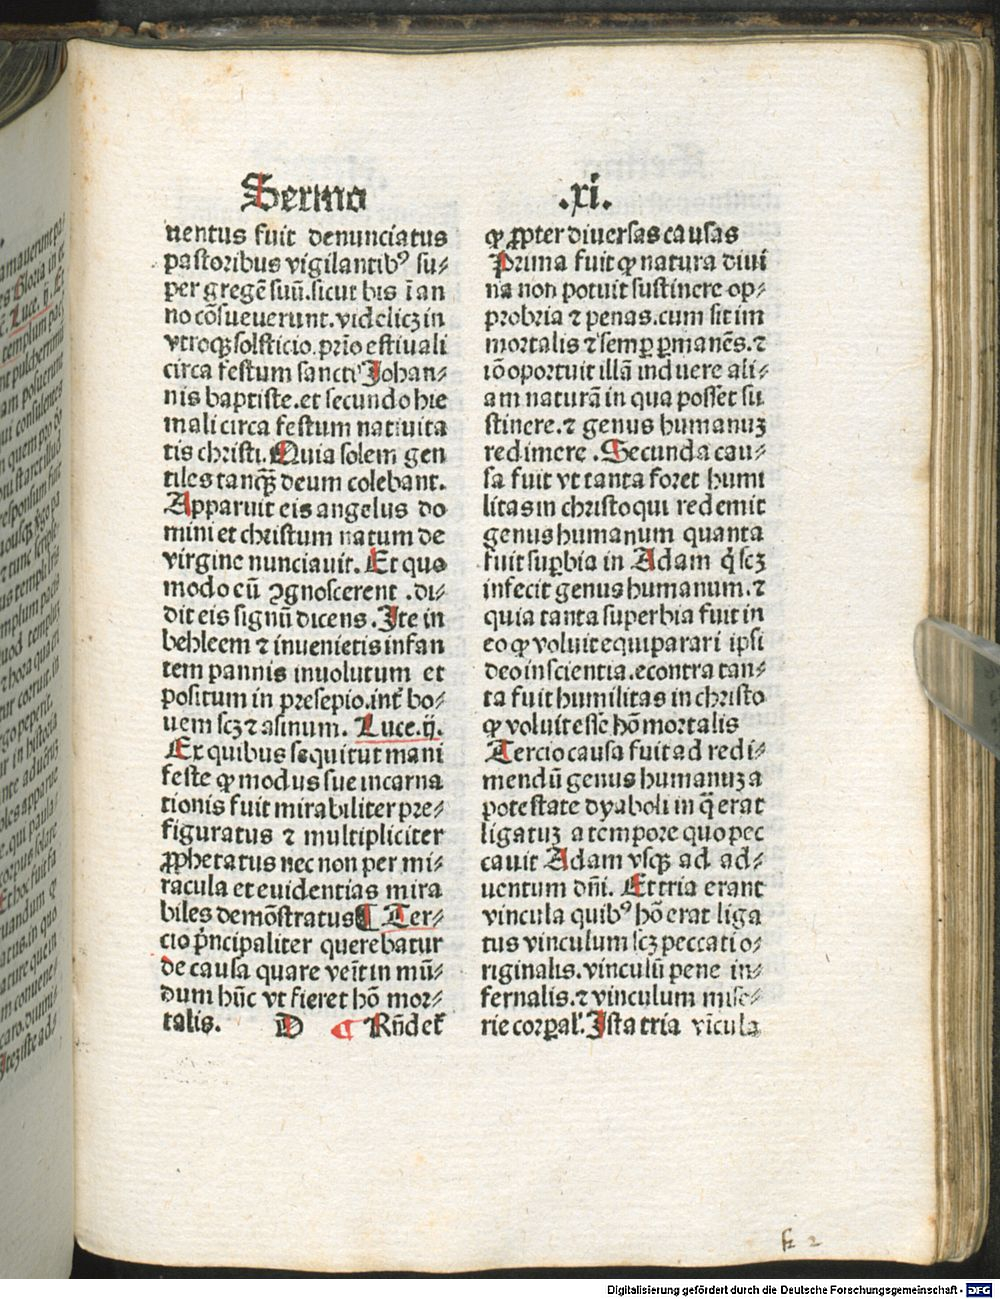 Sermo
.xi.
uentus fuit denunciatus
pastoribus vigilantibꝰ su⸗
per gregē suū.sicut bis ī an
no cōsueuerunt.videlicꝫ in
vtroqꝫ solsticio.prīo estiuali
circa festum sancti Johan⸗
nis baptiste.et secundo hie
mali circa festum natiuita
tis christi.Quia solem gen
tiles tanqꝫ deum colebant.
Apparuit eis angelus do
mini et christum natum de
virgine nunciauit. Et quo
modo eū ꝯgnoscerent .di⸗
dit eis signū dicens.Ite in
behleem ⁊ inuenietis infan
tem pannis inuolutum et
positum in presepio.int̄ bo⸗
uem scꝫ ⁊ asinum. Luce.ij.
Ex quibus sequitut mani
feste ꝙ modus sue incarna
tionis fuit mirabiliter pre⸗
figuratus ⁊ multipliciter
ꝓphetatus nec non per mi⸗
racula et euidentias mira
biles demōstratus ¶ Ter⸗
cio pͥncipaliter querebatur
de causa quare veīt in mū⸗
dum hūc vt fieret hō mor⸗
talis. D ¶ Rn̄det̄
ꝙ ꝓpter diuersas causas
Prima fuit ꝙ natura diui
na non potuit sustinere op⸗
probria ⁊ penas.cum sit im
mortalis ⁊ semꝑ ꝑmanēs.⁊
iō oportuit illā induere ali⸗
am naturā in qua posset su
stinere.⁊ genus humanuꝫ
redimere .Secunda cau⸗
sa fuit vt tanta foret humi
litas in christo qui redemit
genus humanum quanta
fuit suꝑbia in Adam qͥ scꝫ
infecit genus humanum.⁊
quia tanta superbia fuit in
eo ꝙ voluit equiparari ipsi
deo in scientia.econtra tan⸗
ta fuit humilitas in christo
ꝙ voluit esse hō mortalis
Tercio causa fuit ad redi⸗
mendū genus humanuꝫ a
potestate dyaboli in q̄ erat
ligatuꝫ a tempore quo pec
cauit Adam vsqꝫ ad ad⸗
uentum dn̄i. Et tria erant
vincula quibꝰ hō erat liga
tus vinculum scꝫ peccati o⸗
riginalis.vinculū pene in⸗
fernalis.⁊ vinculum mise⸗
rie corꝑal'.Ista tria vīcula
f 2
Digitalisierung gefördert durch die Deutsche Forschungsgemeinschaft - DFG